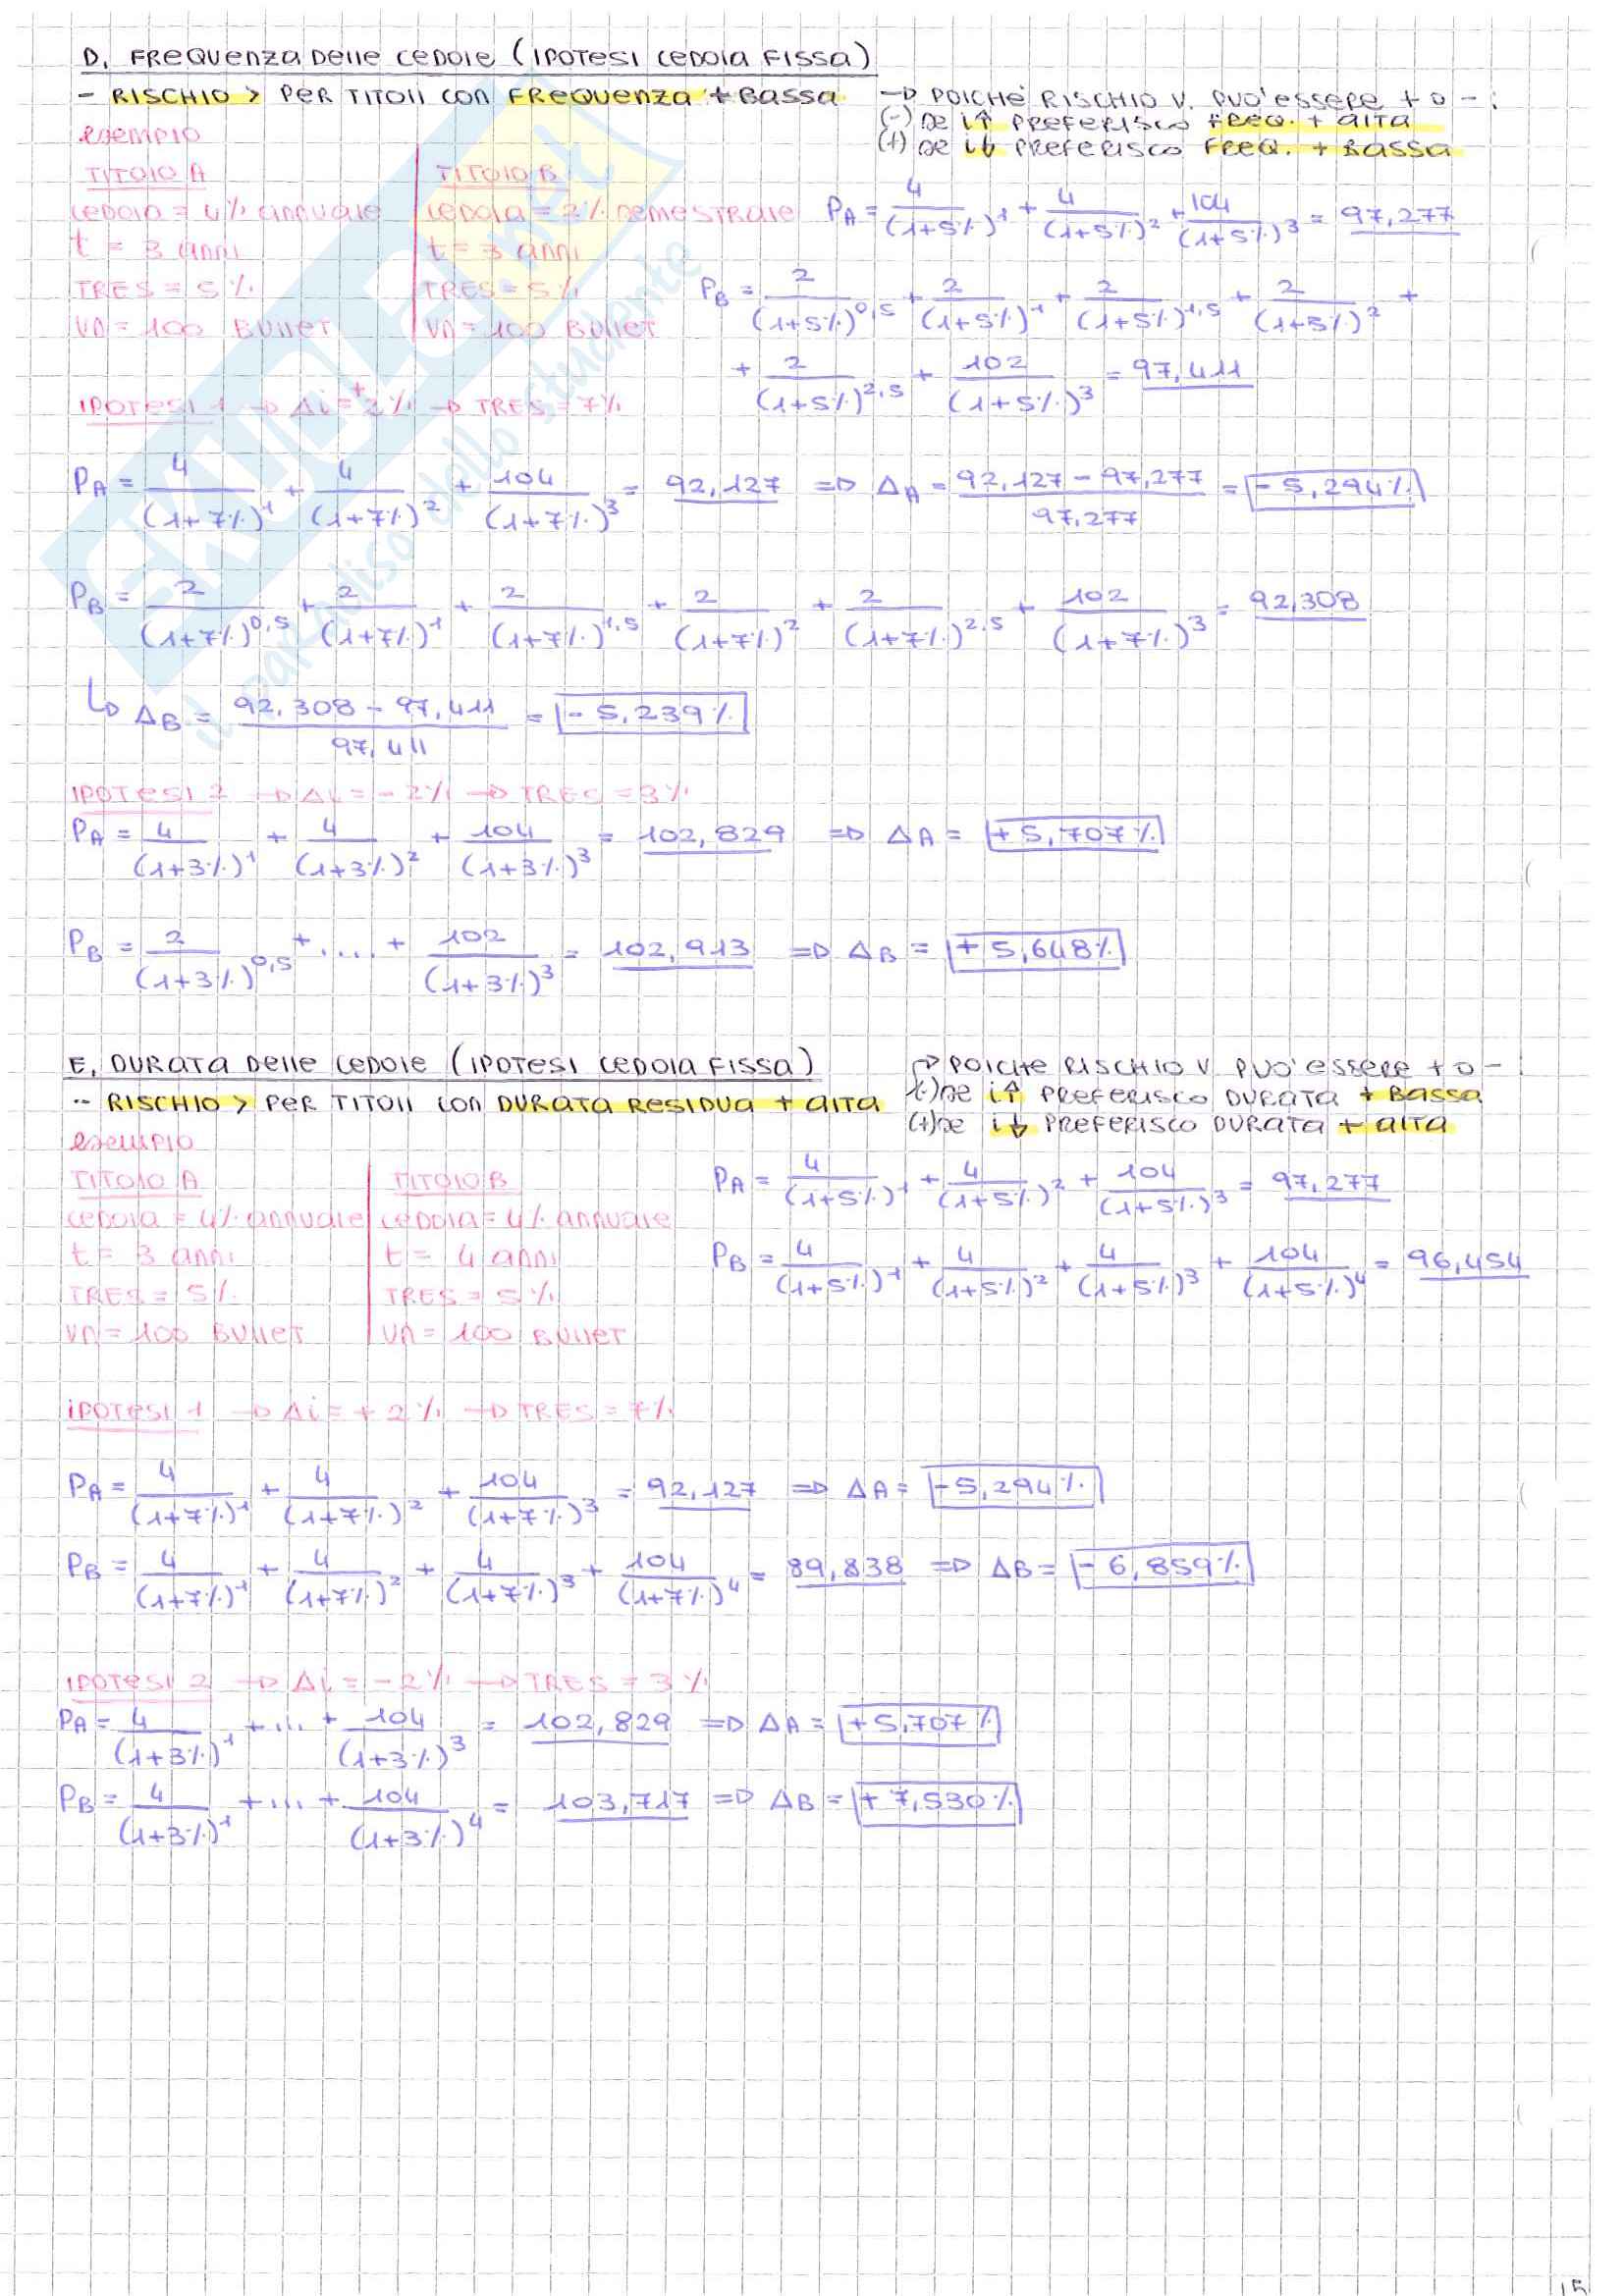 D. FREQUENZA DELLE CEDOLE (IPOTESI CEDOLA FISSA)
- RISCHIO > PER TITOLI CON FREQUENZA + BASSA → POICHÉ RISCHIO V. PUO' ESSERE + O - :
(-) SE i↑ PREFERISCO FREQ. + ALTA
(+) SE i↓ PREFERISCO FREQ. + BASSA
esempio
TITOLO A | TITOLO B
CEDOLA = 4% annuale | CEDOLA = 2% semestrale
t = 3 anni | t = 3 anni
TRES = 5% | TRES = 5%
VN = 100 BULLET | VN = 100 BULLET
PA = 4/(1+5%)^1 + 4/(1+5%)^2 + 104/(1+5%)^3 = 97,277
PB = 2/(1+5%)^0,5 + 2/(1+5%)^1 + 2/(1+5%)^1,5 + 2/(1+5%)^2 +
+ 2/(1+5%)^2,5 + 102/(1+5%)^3 = 97,411
IPOTESI 1 → Δi = +2% → TRES = 7%
PA = 4/(1+7%)^1 + 4/(1+7%)^2 + 104/(1+7%)^3 = 92,127 ⇒ ΔA = (92,127 - 97,277)/97,277 = -5,294%
PB = 2/(1+7%)^0,5 + 2/(1+7%)^1 + 2/(1+7%)^1,5 + 2/(1+7%)^2 + 2/(1+7%)^2,5 + 102/(1+7%)^3 = 92,308
↳ ΔB = (92,308 - 97,411)/97,411 = -5,239%
IPOTESI 2 → Δi = -2% → TRES = 3%
PA = 4/(1+3%)^1 + 4/(1+3%)^2 + 104/(1+3%)^3 = 102,829 ⇒ ΔA = +5,707%
PB = 2/(1+3%)^0,5 + .... + 102/(1+3%)^3 = 102,913 ⇒ ΔB = +5,648%
E. DURATA DELLE CEDOLE (IPOTESI CEDOLA FISSA) → POICHE RISCHIO V. PUO' ESSERE + O - :
- RISCHIO > PER TITOLI CON DURATA RESIDUA + ALTA (-) SE i↑ PREFERISCO DURATA + BASSA
(+) SE i↓ PREFERISCO DURATA + ALTA
esempio
TITOLO A | TITOLO B
CEDOLA = 4% annuale | CEDOLA = 4% annuale
t = 3 anni | t = 4 anni
TRES = 5% | TRES = 5%
VN = 100 BULLET | VN = 100 BULLET
PA = 4/(1+5%)^1 + 4/(1+5%)^2 + 104/(1+5%)^3 = 97,277
PB = 4/(1+5%)^1 + 4/(1+5%)^2 + 4/(1+5%)^3 + 104/(1+5%)^4 = 96,454
IPOTESI 1 → Δi = +2% → TRES = 7%
PA = 4/(1+7%)^1 + 4/(1+7%)^2 + 104/(1+7%)^3 = 92,127 ⇒ ΔA = -5,294%
PB = 4/(1+7%)^1 + 4/(1+7%)^2 + 4/(1+7%)^3 + 104/(1+7%)^4 = 89,838 ⇒ ΔB = -6,859%
IPOTESI 2 → Δi = -2% → TRES = 3%
PA = 4/(1+3%)^1 + ... + 104/(1+3%)^3 = 102,829 ⇒ ΔA = +5,707%
PB = 4/(1+3%)^1 + ... + 104/(1+3%)^4 = 103,717 ⇒ ΔB = +7,530%